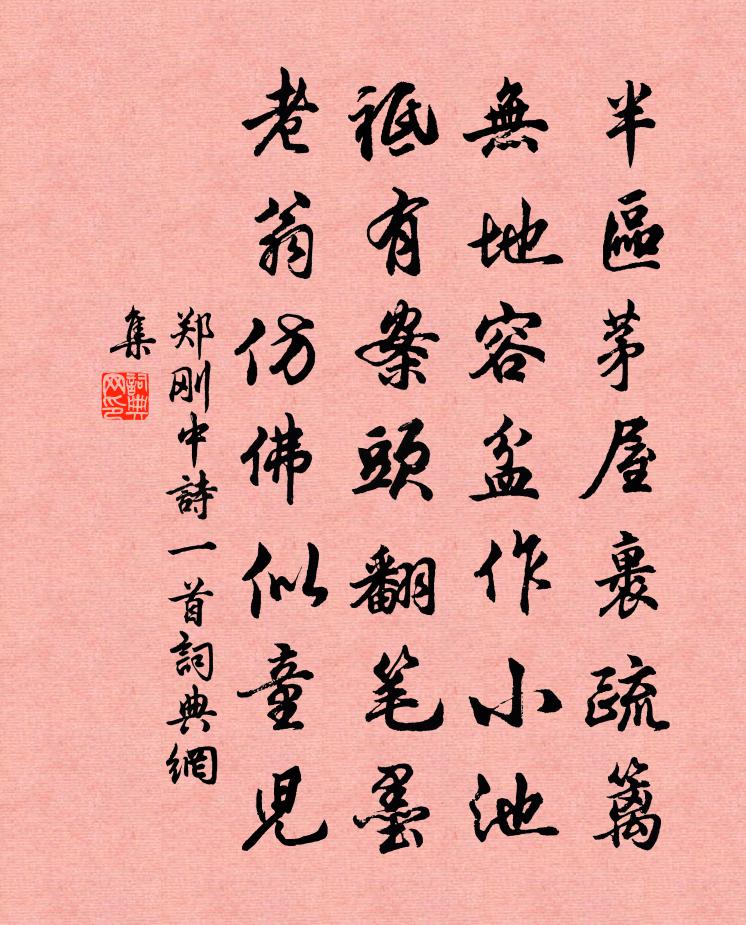 半區茅屋裹疏籬
無地容盆作小池
祗有案頭翻笔墨
老翁仿佛似童児
郑刚中詩一首詞典網
集
詞典网印